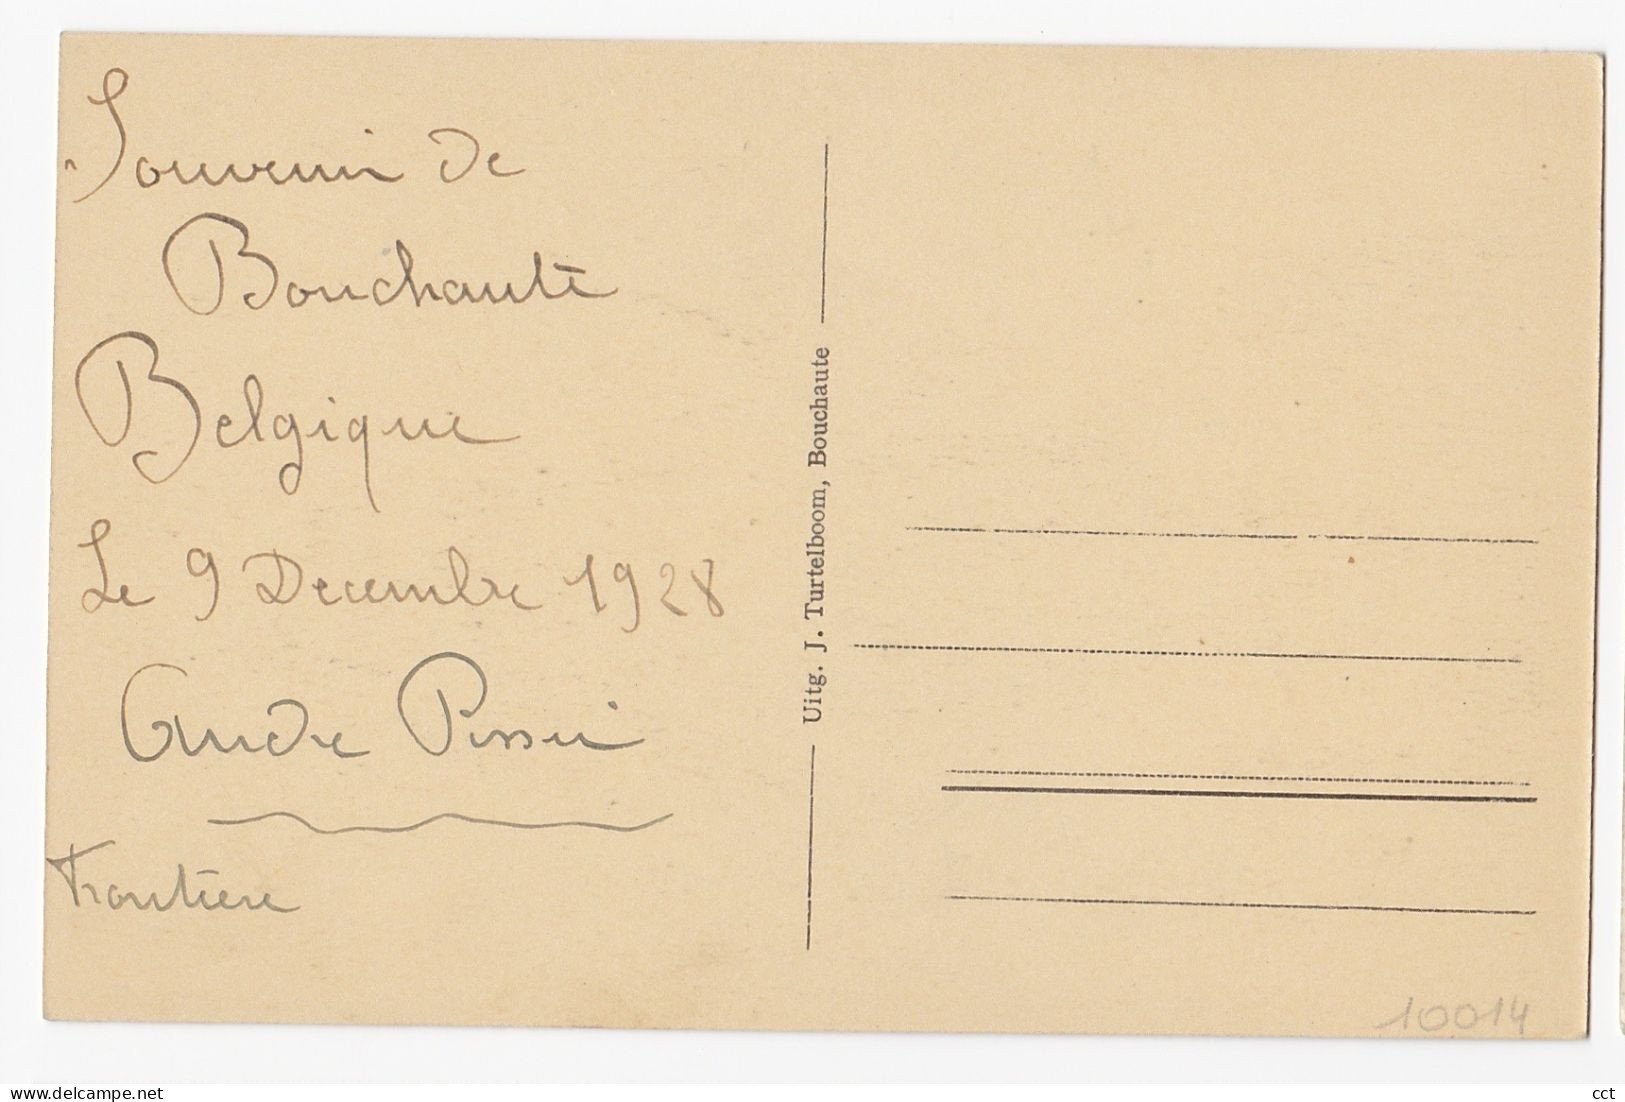 Souvenir de
Bouchaute
Belgique
Le 9 Decembre 1928
Andre
Frontiere
Uitg. J. Turtelboom, Bouchaute
10014
delcampe.net
cct